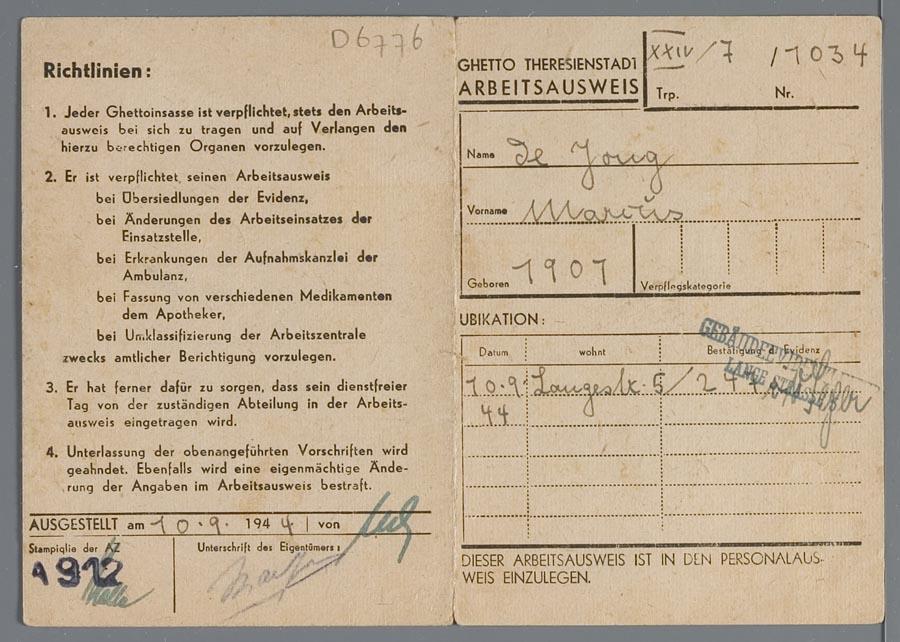 D6776
Richtlinien:
1. Jeder Ghettoinsasse ist verpflichtet, stets den Arbeits-
ausweis bei sich zu tragen und auf Verlangen den
hierzu berechtigen Organen vorzulegen.
2. Er ist verpflichtet seinen Arbeitsausweis
bei Übersiedlungen der Evidenz,
bei Änderungen des Arbeitseinsatzes der
Einsatzstelle,
bei Erkrankungen der Aufnahmskanzlei der
Ambulanz,
bei Fassung von verschiedenen Medikamenten
dem Apotheker,
bei Umklassifizierung der Arbeitszentrale
zwecks amtlicher Berichtigung vorzulegen.
3. Er hat ferner dafür zu sorgen, dass sein dienstfreier
Tag von der zuständigen Abteilung in der Arbeits-
ausweis eingetragen wird.
4. Unterlassung der obenangeführten Vorschriften wird
geahndet. Ebenfalls wird eine eigenmächtige Ände-
rung der Angaben im Arbeitsausweis bestraft.
AUSGESTELLT am 10.9. 1944 von
Stampiglie der AZ
Unterschrift des Eigentümers:
A 912
GHETTO THERESIENSTADT
ARBEITSAUSWEIS
XXIV/7 /1034
Trp. Nr.
Name De Jong
Vorname Marcus
Geboren 1907
Verpflegskategorie
UBIKATION:
Datum wohnt Bestätigung d. Evidenz
10.9. Langestr. 5/
44
LANGE STRASSE
DIESER ARBEITSAUSWEIS IST IN DEN PERSONALAUS-
WEIS EINZULEGEN.